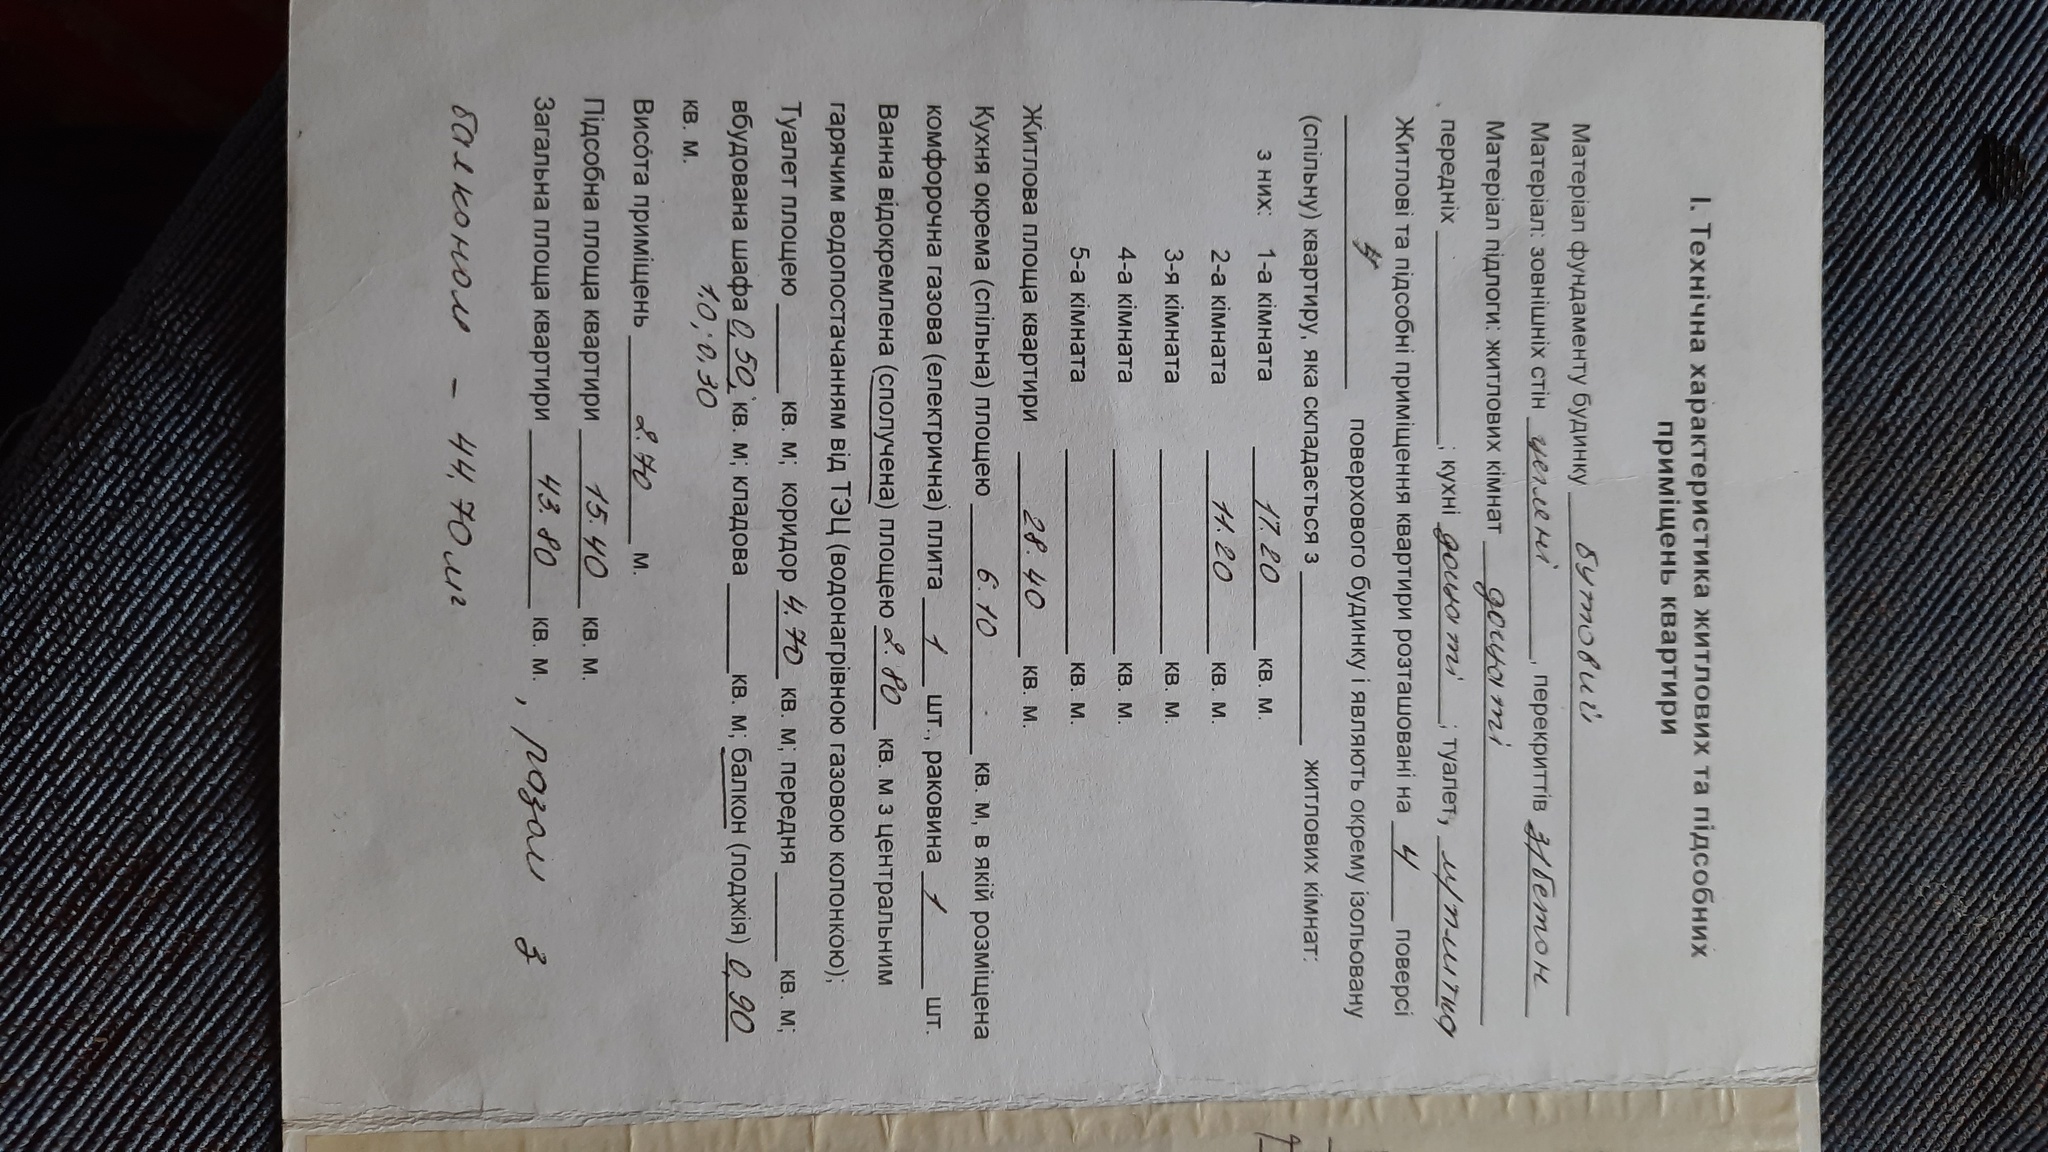 І. Технічна характеристика житлових та підсобних
приміщень квартири
Матеріал фундаменту будинку бутовий
Матеріал: зовнішніх стін цегляні, перекриттів з/бетон
Матеріал підлоги: житлових кімнат дощаті
передніх ; кухні дощаті ; туалет,
Житлові та підсобні приміщення квартири розташовані на 4 поверсі
4 поверхового будинку і являють окрему ізольовану
(спільну) квартиру, яка складається з житлових кімнат:
з них: 1-а кімната 17.20 кв. м.
2-а кімната 11.20 кв. м.
3-я кімната кв. м.
4-а кімната кв. м.
5-а кімната кв. м.
Житлова площа квартири 28.40 кв. м.
Кухня окрема (спільна) площею 6.10 кв. м, в якій розміщена
комфорочна газова (електрична) плита 1 шт., раковина 1 шт.
Ванна відокремлена (сполучена) площею 2.80 кв. м з центральним
гарячим водопостачанням від ТЭЦ (водонагрівною газовою колонкою);
Туалет площею кв. м; коридор 4.70 кв. м; передня кв. м;
вбудована шафа 0,50; кв. м; кладова кв. м; балкон (лоджія) 0,90
1.0; 0,30
кв. м.
Висота приміщень 2.70 м.
Підсобна площа квартири 15.40 кв. м.
Загальна площа квартири 43.80 кв. м. , разом з
балконом - 44,70 м²